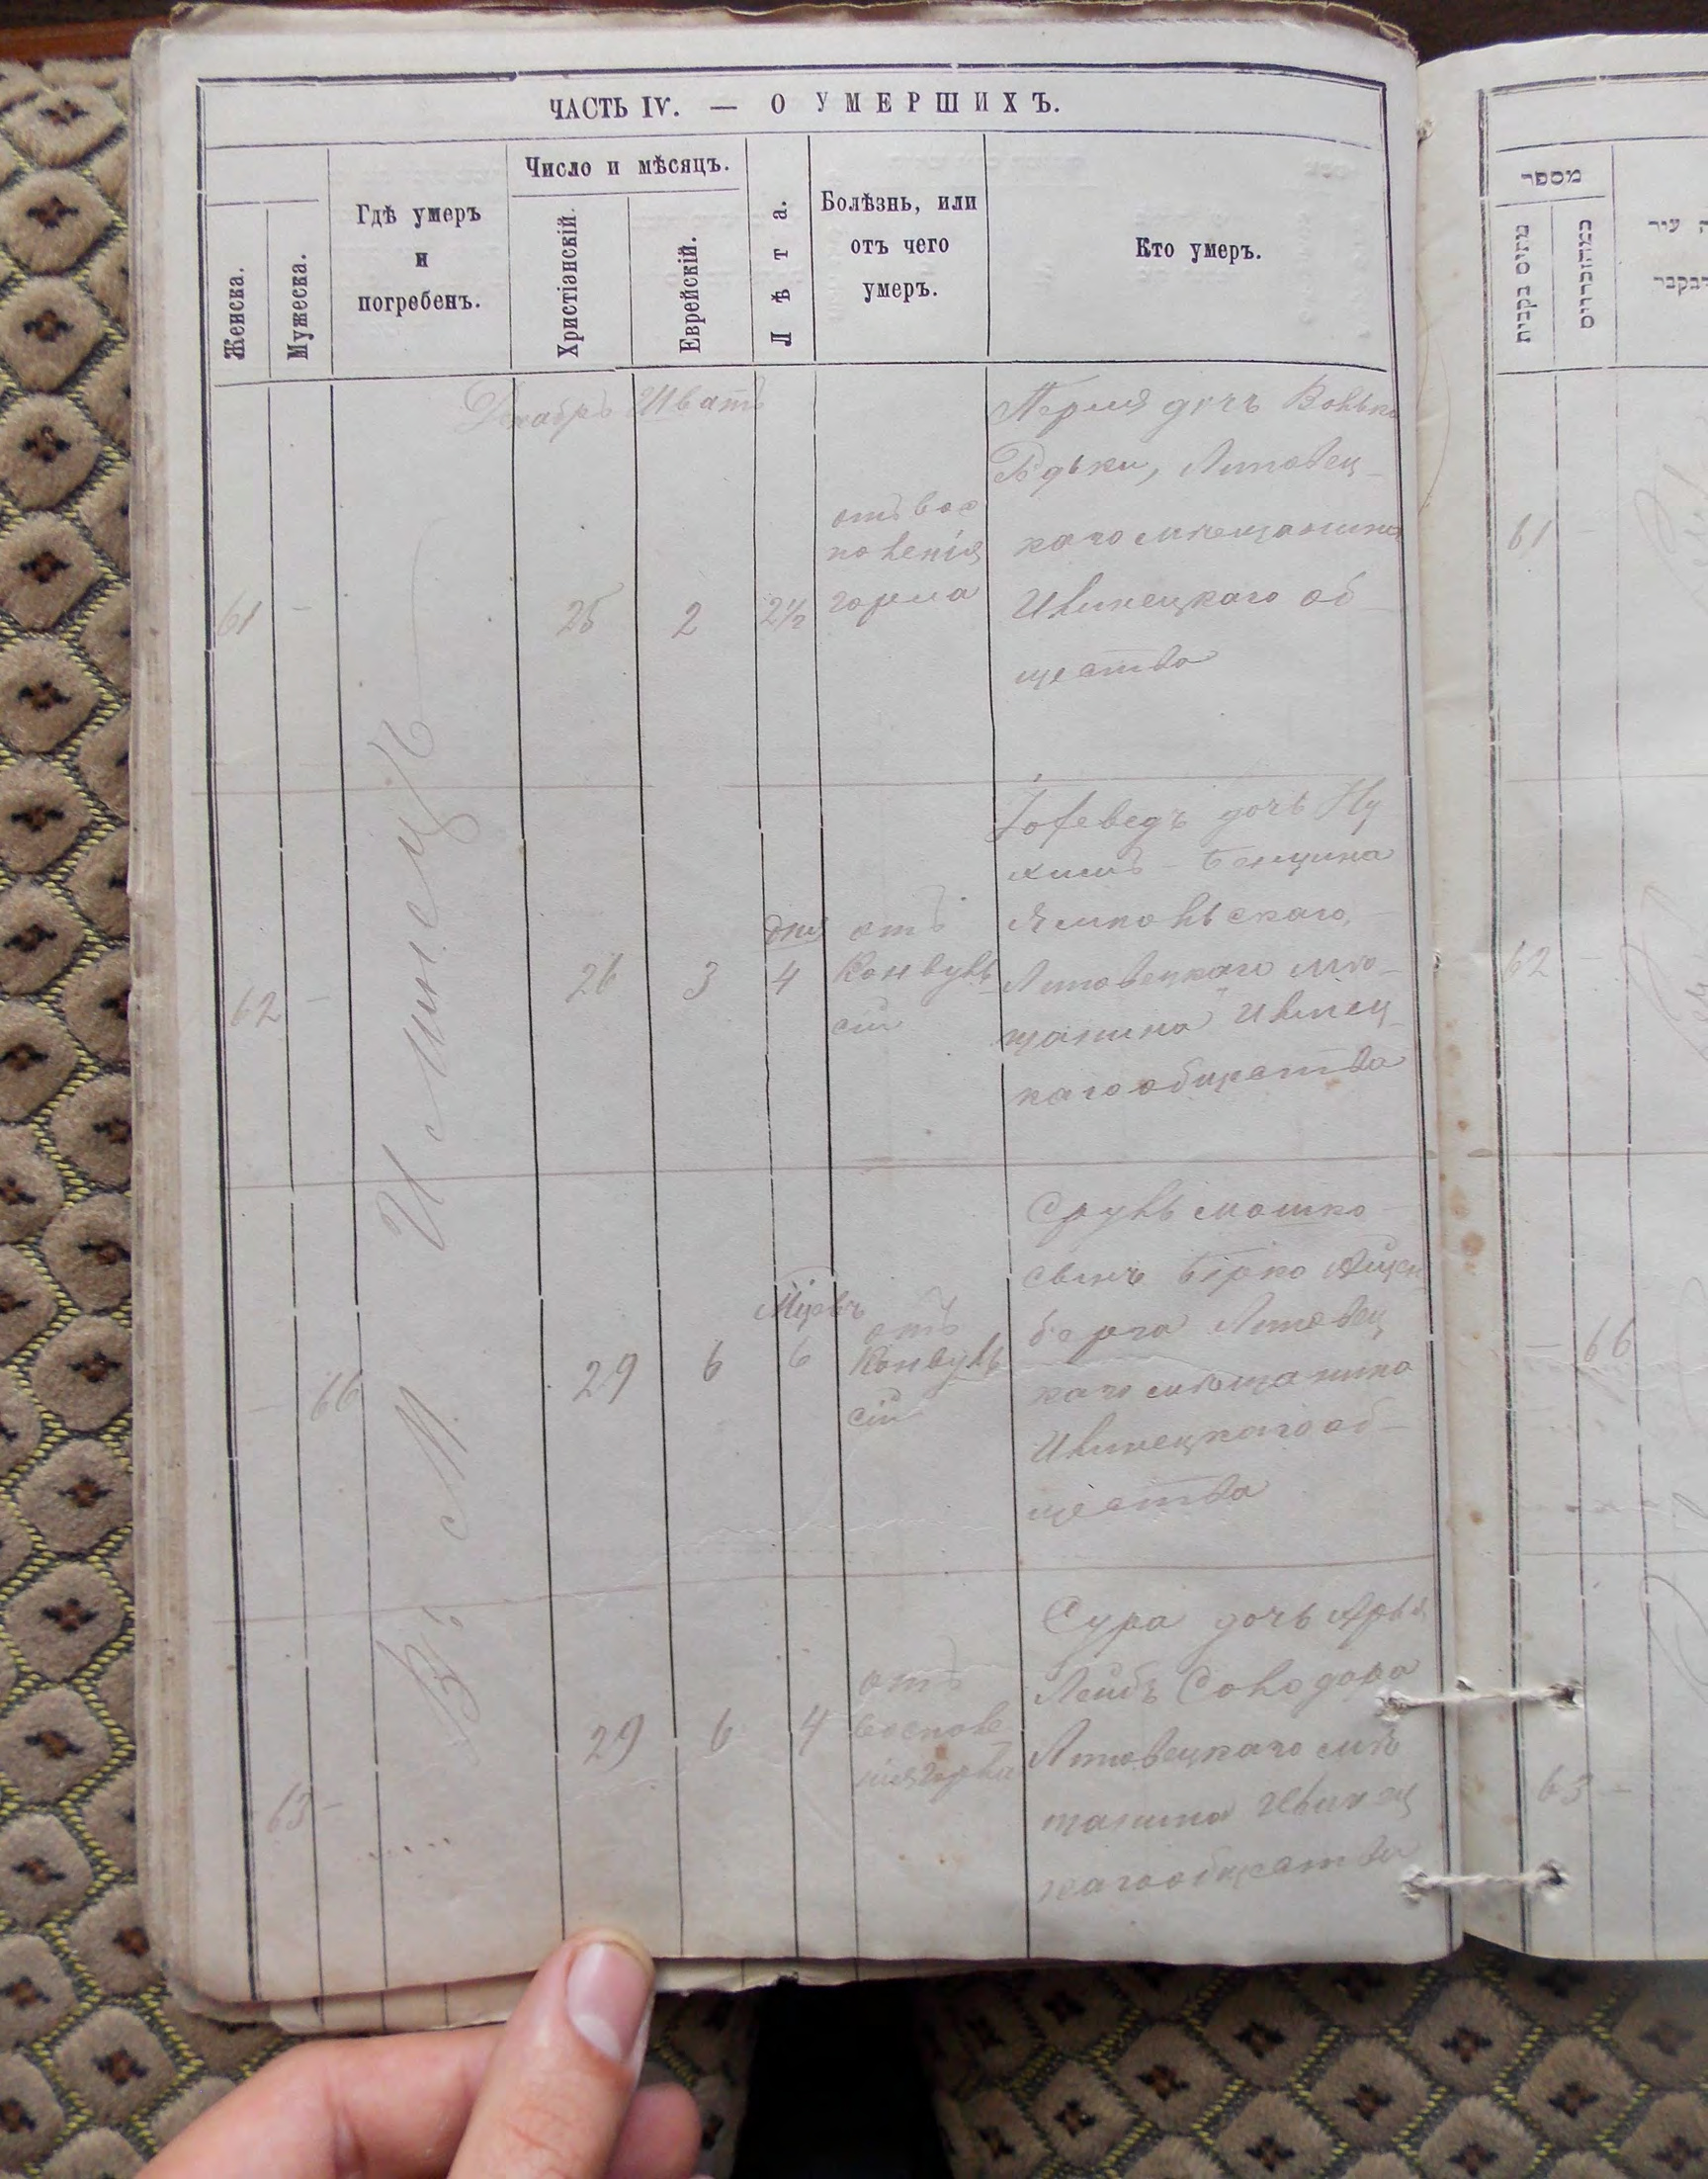 ЧАСТЬ IV. — О УМЕРШИХЪ.
Женска.
Мужеска.
Гдѣ умеръ
и
погребенъ.
Число и мѣсяцъ.
Христіанскій.
Еврейскій.
Лѣта.
Болѣзнь, или
отъ чего
умеръ.
Кто умеръ.
Въ М. Илинцѣ
Декабрь Шватъ
61 - 25 2 2 1/2
отъ вос
поленія
горла
Перля дочь Волько
Липовец-
каго мѣщанина
Илинецкаго об-
щества
62 - 26 3 дня 4
отъ
Конвуль-
сіи
дочь Ну
химъ-Бенциона
Ямпольскаго,
Липовецкаго мѣ-
щанина Илинец-
каго общества
- 66 29 6 Мѣсяцъ 6
отъ
Конвуль
сіи
Сруль Мошко
сынъ Берко Айзен
берга Липовец
каго мѣщанина
Илинецкаго об-
щества
63 - 29 6 4
отъ
воспале
нія горла
Сура дочь Арья
Лейбъ
Липовецкаго мѣ
щанина Илинец
каго общества
מספר
נקבות
61 -
62 -
- 66
63 -